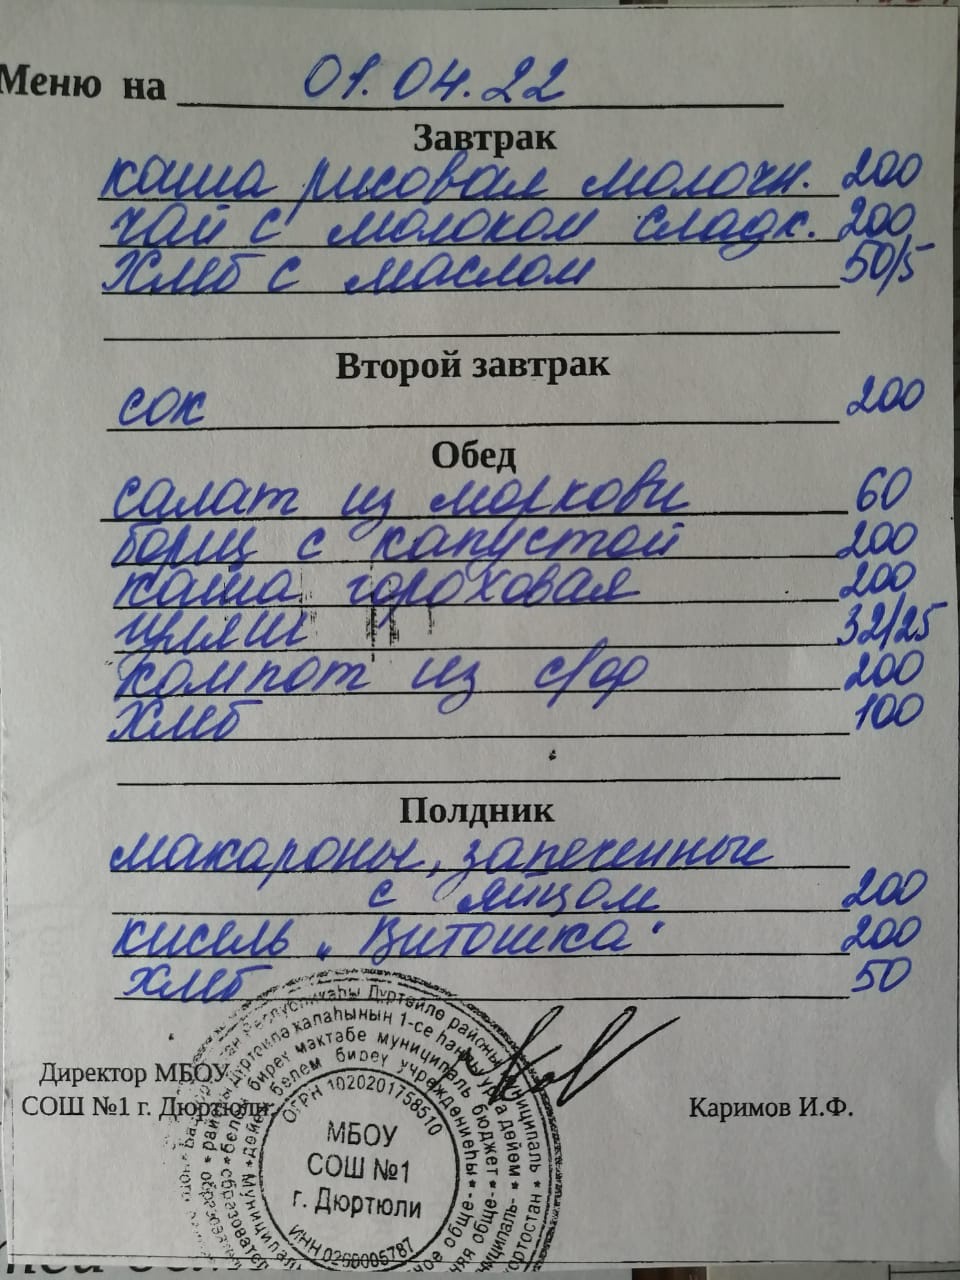 Меню на 01.04.22
Завтрак
каша рисовая молочн. 200
чай с молоком сладк. 200
Хлеб с маслом 50/5
Второй завтрак
сок 200
Обед
салат из моркови 60
борщ с капустой 200
каша гороховая 200
гуляш 32/25
компот из с/фр 200
Хлеб 100
Полдник
макароны, запеченные
с яйцом 200
кисель „Витошка" 200
Хлеб 50
Директор МБОУ
СОШ №1 г. Дюртюли
Каримов И.Ф.
ОГРН 1020201758510
МБОУ
СОШ №1
г. Дюртюли
ИНН 0260005787